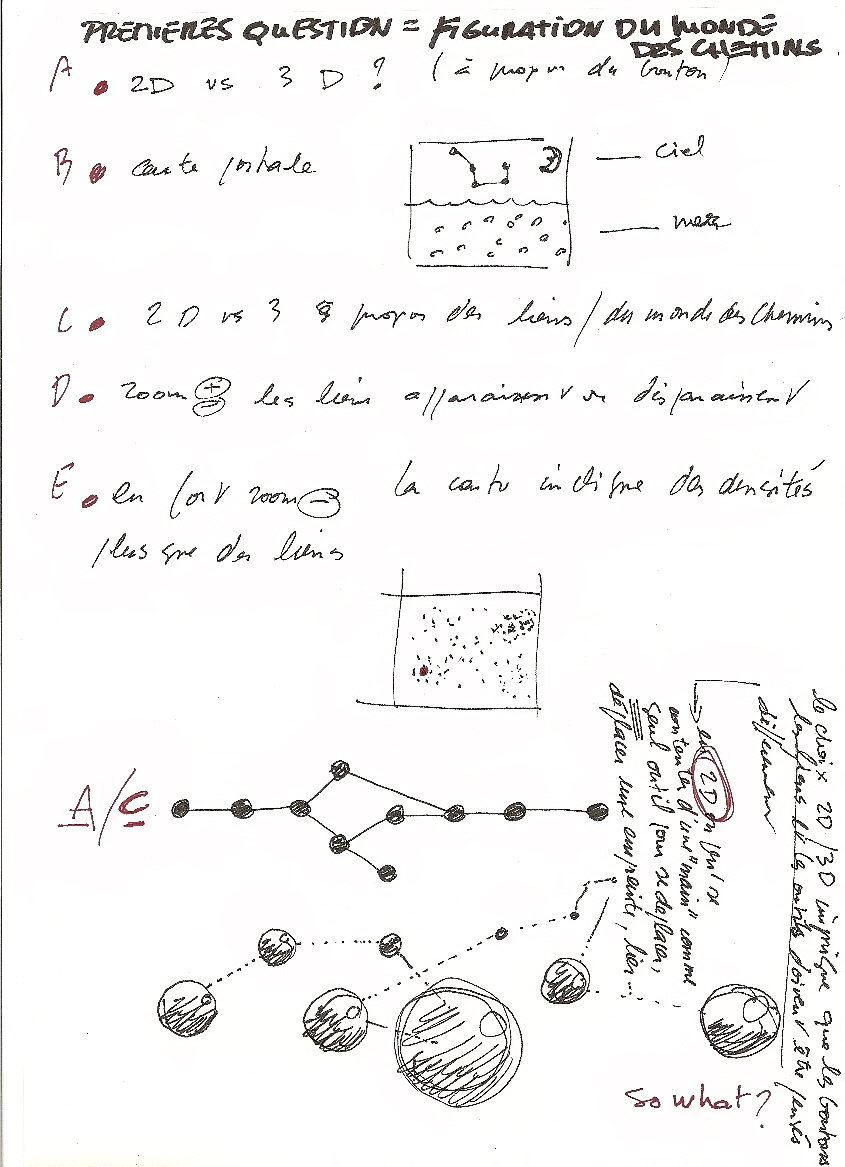 PREMIERES QUESTION = FIGURATION DU MONDE
DES CHEMINS.
A • 2D vs 3D ? (à propos du bouton)
B • carte postale
ciel
mer
C • 2D vs 3 à propos des liens / du monde des chemins
D • zoom + - les liens apparaissent ou disparaissent
E • en fort zoom - la carte indique des densités
plus que des liens
A/C
le choix 2D/3D implique que les boutons
les liens et les outils doivent être pensés
différemment
→ en 2D on peut se
contenter d'une "main" comme
seul outil pour se déplacer,
déplacer une empreinte, lien...
So what?